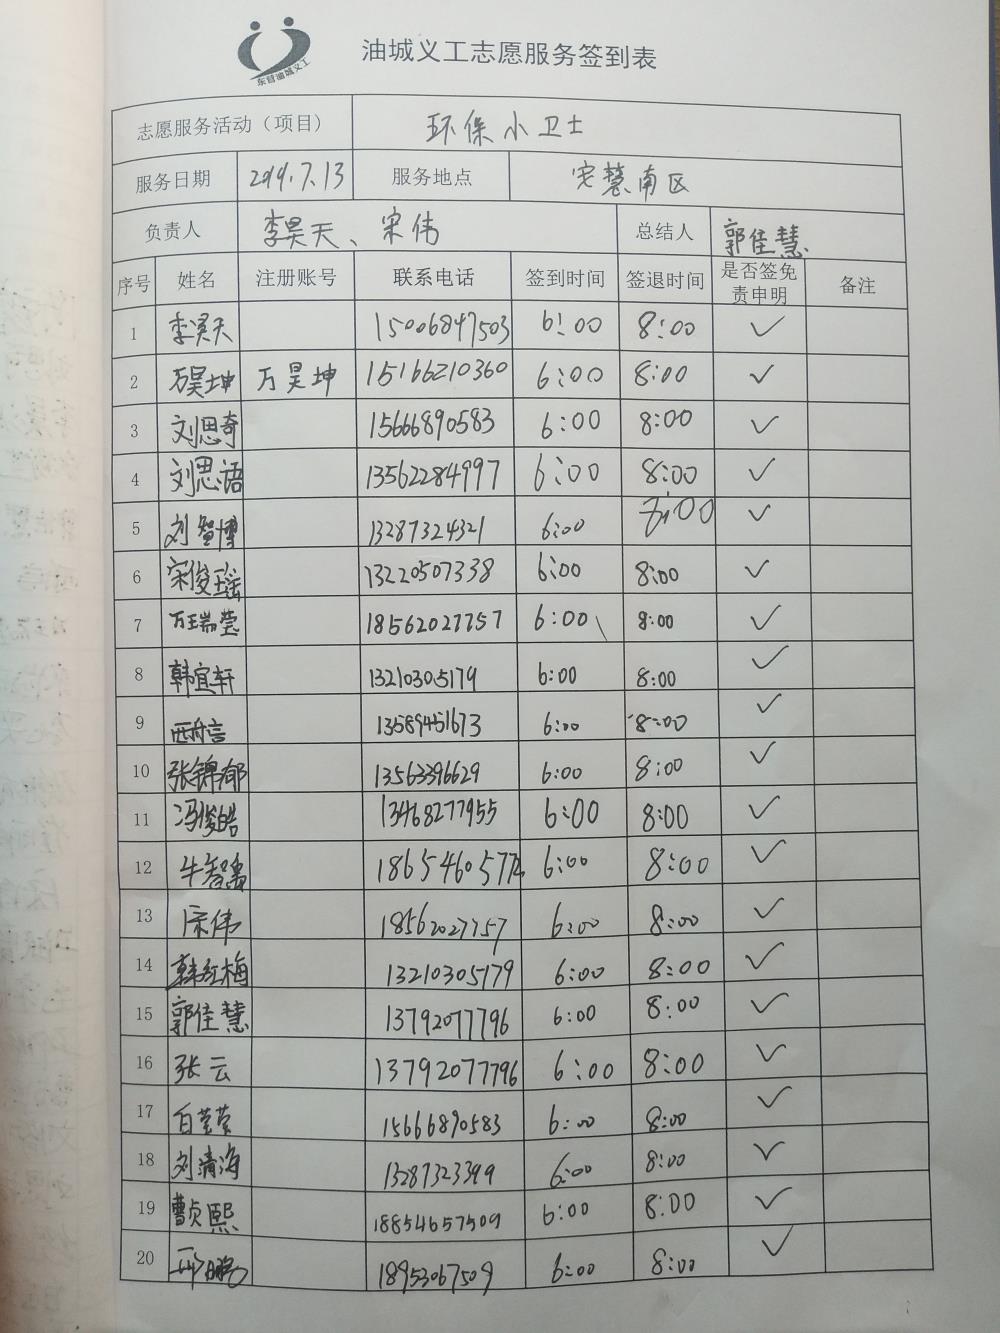 东营油城义工
油城义工志愿服务签到表
志愿服务活动（项目） 环保小卫士
服务日期 2019.7.13 服务地点 安慧南区
负责人 李昊天、宋伟 总结人 郭佳慧
序号 姓名 注册账号 联系电话 签到时间 签退时间 是否签免责申明 备注
1 李昊天 15006847503 6:00 8:00 ✓
2 万昊坤 万昊坤 15166210360 6:00 8:00 ✓
3 刘思奇 15666890583 6:00 8:00 ✓
4 刘思语 13562284997 6:00 8:00 ✓
5 刘智博 13287324321 6:00 8:00 ✓
6 宋俊瑶 13220507338 6:00 8:00 ✓
7 万瑞莹 18562027757 6:00 8:00 ✓
8 韩宜轩 13210305179 6:00 8:00 ✓
9 13589451673 6:00 8:00 ✓
10 张锦郁 13563396629 6:00 8:00 ✓
11 冯俊皓 13468277955 6:00 8:00 ✓
12 牛智禹 6:00 8:00 ✓
13 宋伟 18562027757 6:00 8:00 ✓
14 韩红梅 13210305179 6:00 8:00 ✓
15 郭佳慧 13792077796 6:00 8:00 ✓
16 张云 13792077796 6:00 8:00 ✓
17 白莹莹 15666890583 6:00 8:00 ✓
18 刘清海 13287323399 6:00 8:00 ✓
19 曹贞熙 18854657509 6:00 8:00 ✓
20 邱鹏 18953067509 6:00 8:00 ✓